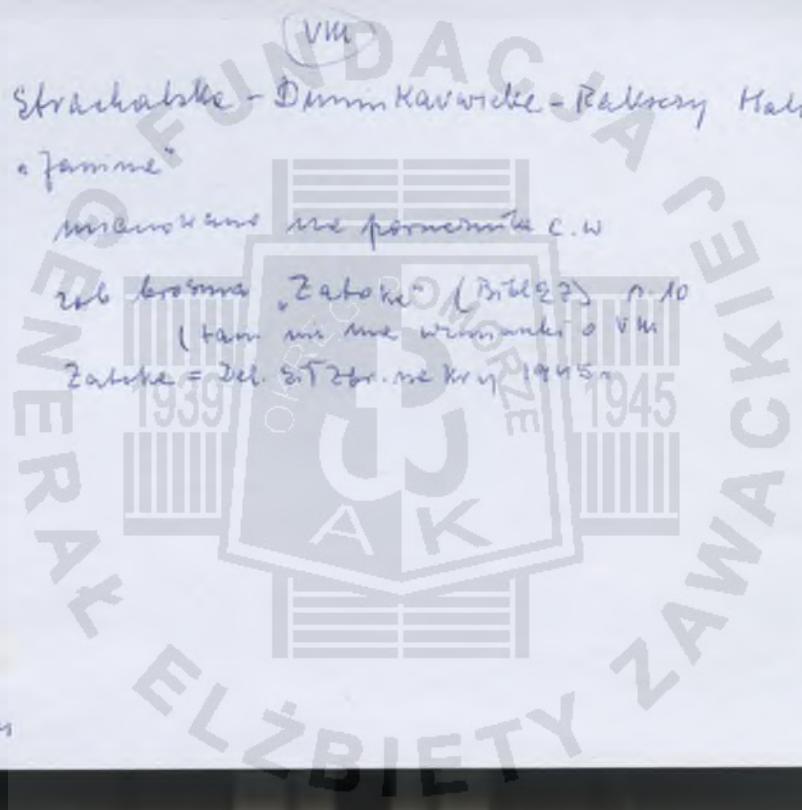 VM
Strachalska - Dunin Karwicka - Rakoczy Hal
"Janina"
mianowana na porucznika c.w
zob broszura "Zatoka" (Bibl   ) s. 10
(tam nie ma wzmianki o VM
Zatoka = Del.   Zbr. na Kraj 1945 r
FUNDACJA GENERAŁ ELŻBIETY ZAWACKIEJ
OKRĘG POMORZE
1939
1945
AK